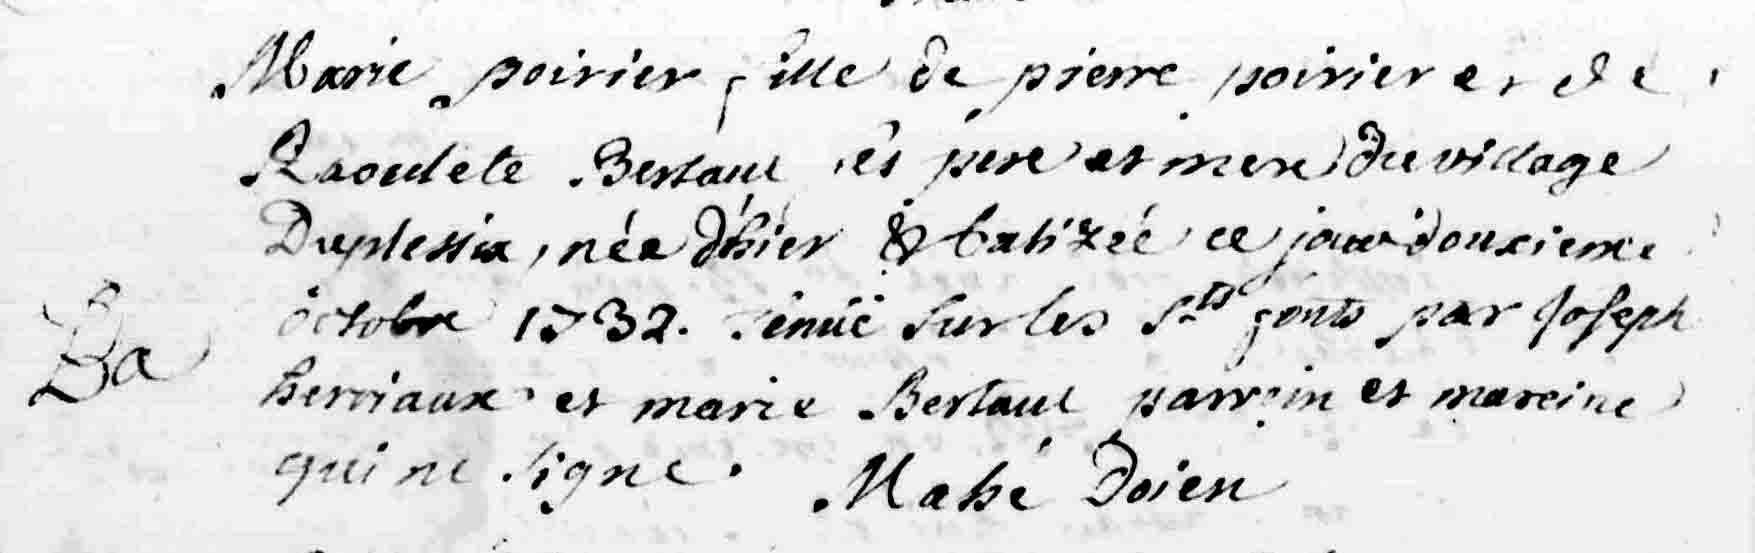 Marie poirier fille de pierre poirier et de
Raoulete Bertaut ses pere et mere du village
Duplessix, née d'hier & batizéé ce jour douxieme
octobre 1732. tenuë sur les Sts fonts par Joseph
herviaux et marie Bertaut parrein et mareine
Ba
qui ne signe. Mahé Doien